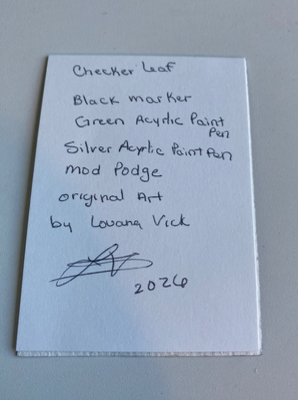 Checker Leaf
Black marker
Green Acyrlic Paint
Pen
Silver Acyrlic Paint Pen
mod Podge
original Art
by Louana Vick
2026